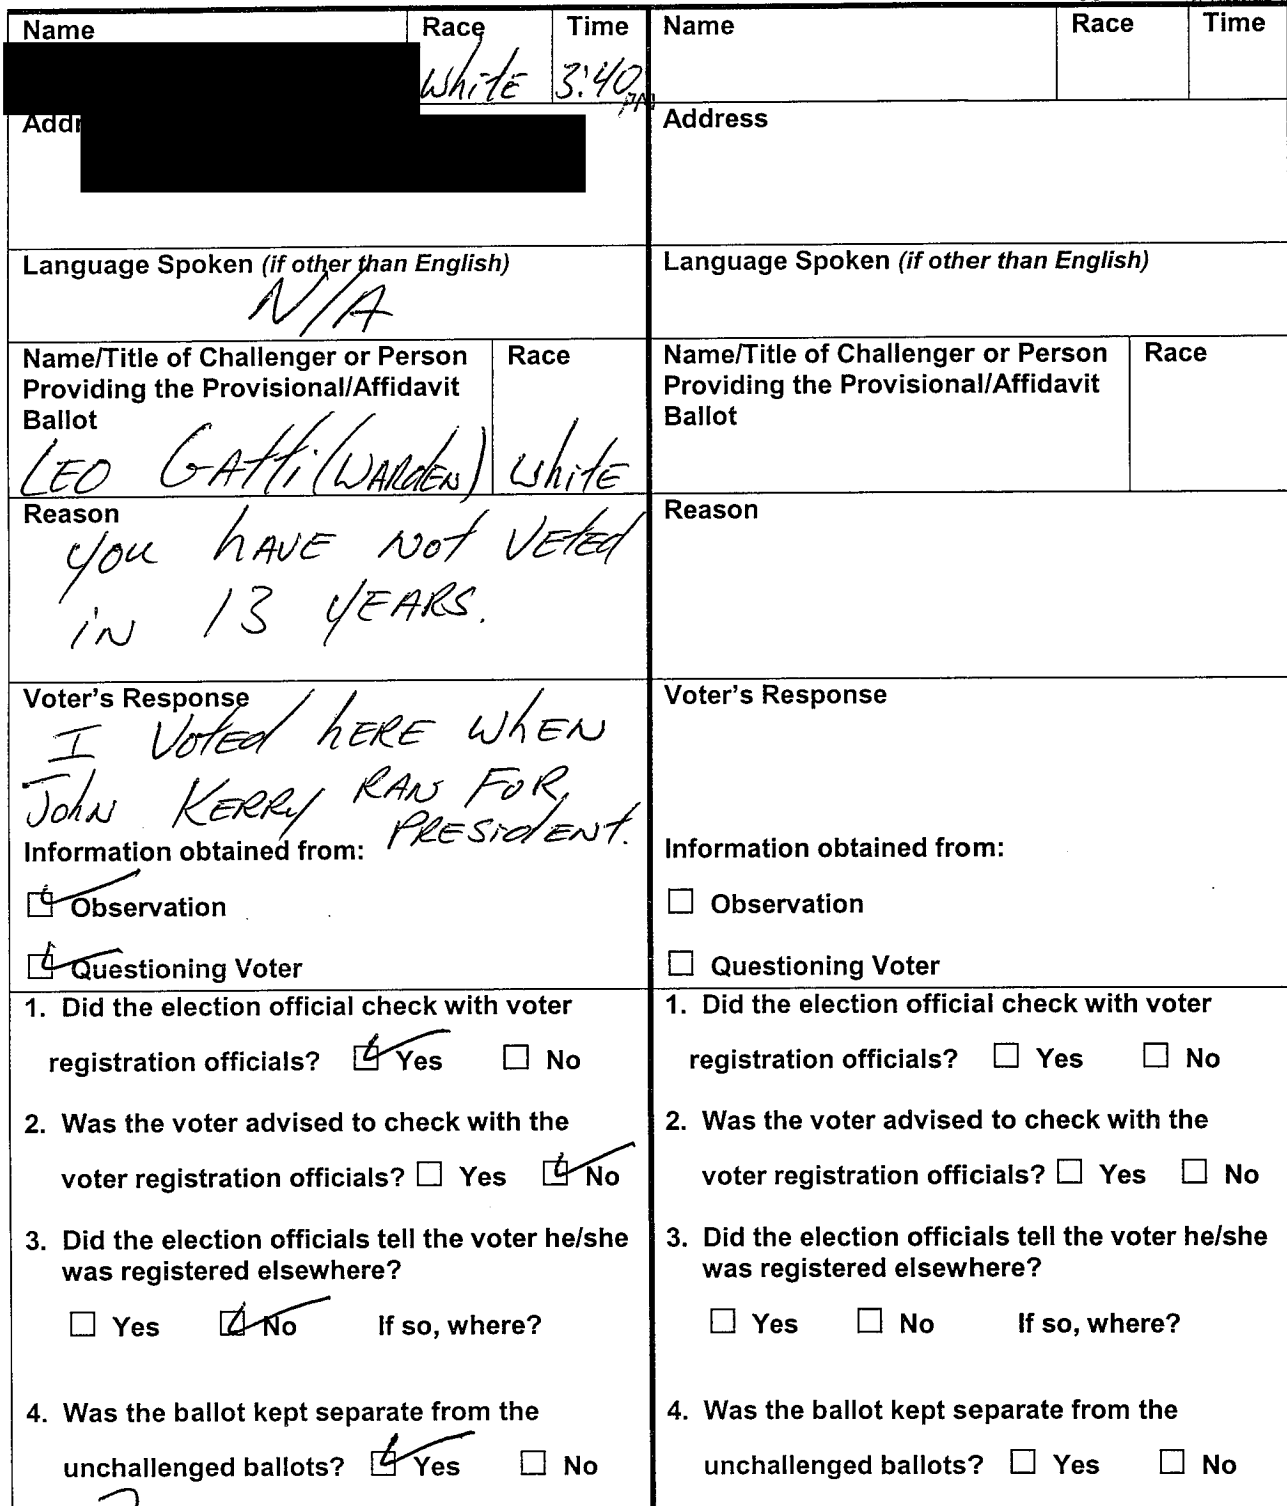 Name Race Time
White 3:40 PM
Addr
Language Spoken (if other than English)
N/A
Name/Title of Challenger or Person Race
Providing the Provisional/Affidavit
Ballot
LEO GAtti (WARDEN) White
Reason
you hAVE Not VEted
iN 13 YEARS.
Voter's Response
I VotEd hERE WhEN
John KERRy RAN FoR
PRESidENt.
Information obtained from:
Observation
Questioning Voter
1. Did the election official check with voter
registration officials? Yes No
2. Was the voter advised to check with the
voter registration officials? Yes No
3. Did the election officials tell the voter he/she
was registered elsewhere?
Yes No If so, where?
4. Was the ballot kept separate from the
unchallenged ballots? Yes No
Name Race Time
Address
Language Spoken (if other than English)
Name/Title of Challenger or Person Race
Providing the Provisional/Affidavit
Ballot
Reason
Voter's Response
Information obtained from:
Observation
Questioning Voter
1. Did the election official check with voter
registration officials? Yes No
2. Was the voter advised to check with the
voter registration officials? Yes No
3. Did the election officials tell the voter he/she
was registered elsewhere?
Yes No If so, where?
4. Was the ballot kept separate from the
unchallenged ballots? Yes No